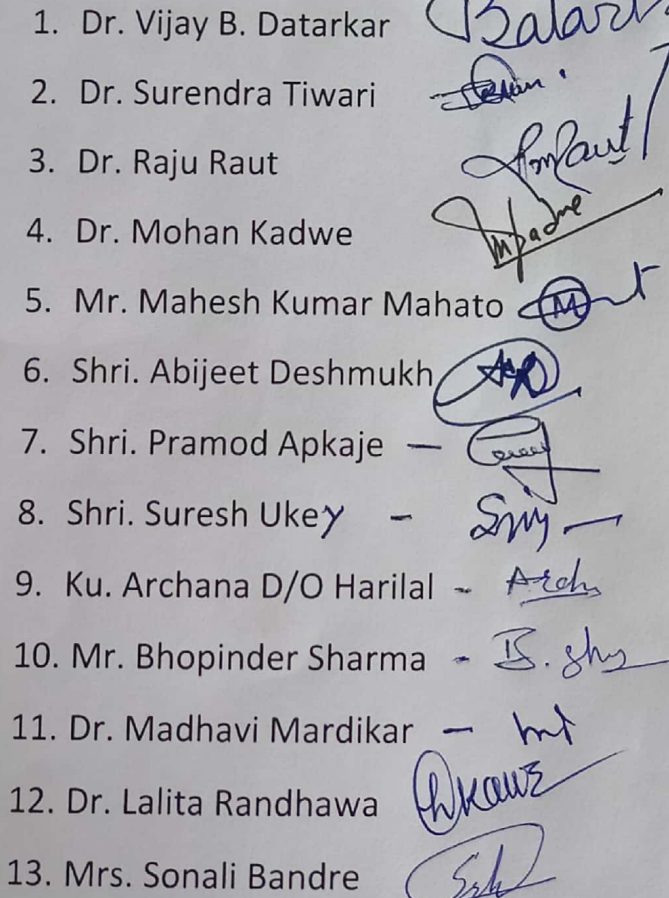 1. Dr. Vijay B. Datarkar
2. Dr. Surendra Tiwari
3. Dr. Raju Raut
4. Dr. Mohan Kadwe
5. Mr. Mahesh Kumar Mahato
6. Shri. Abijeet Deshmukh
7. Shri. Pramod Apkaje –
8. Shri. Suresh Ukey -
9. Ku. Archana D/O Harilal -
10. Mr. Bhopinder Sharma -
11. Dr. Madhavi Mardikar –
12. Dr. Lalita Randhawa
13. Mrs. Sonali Bandre